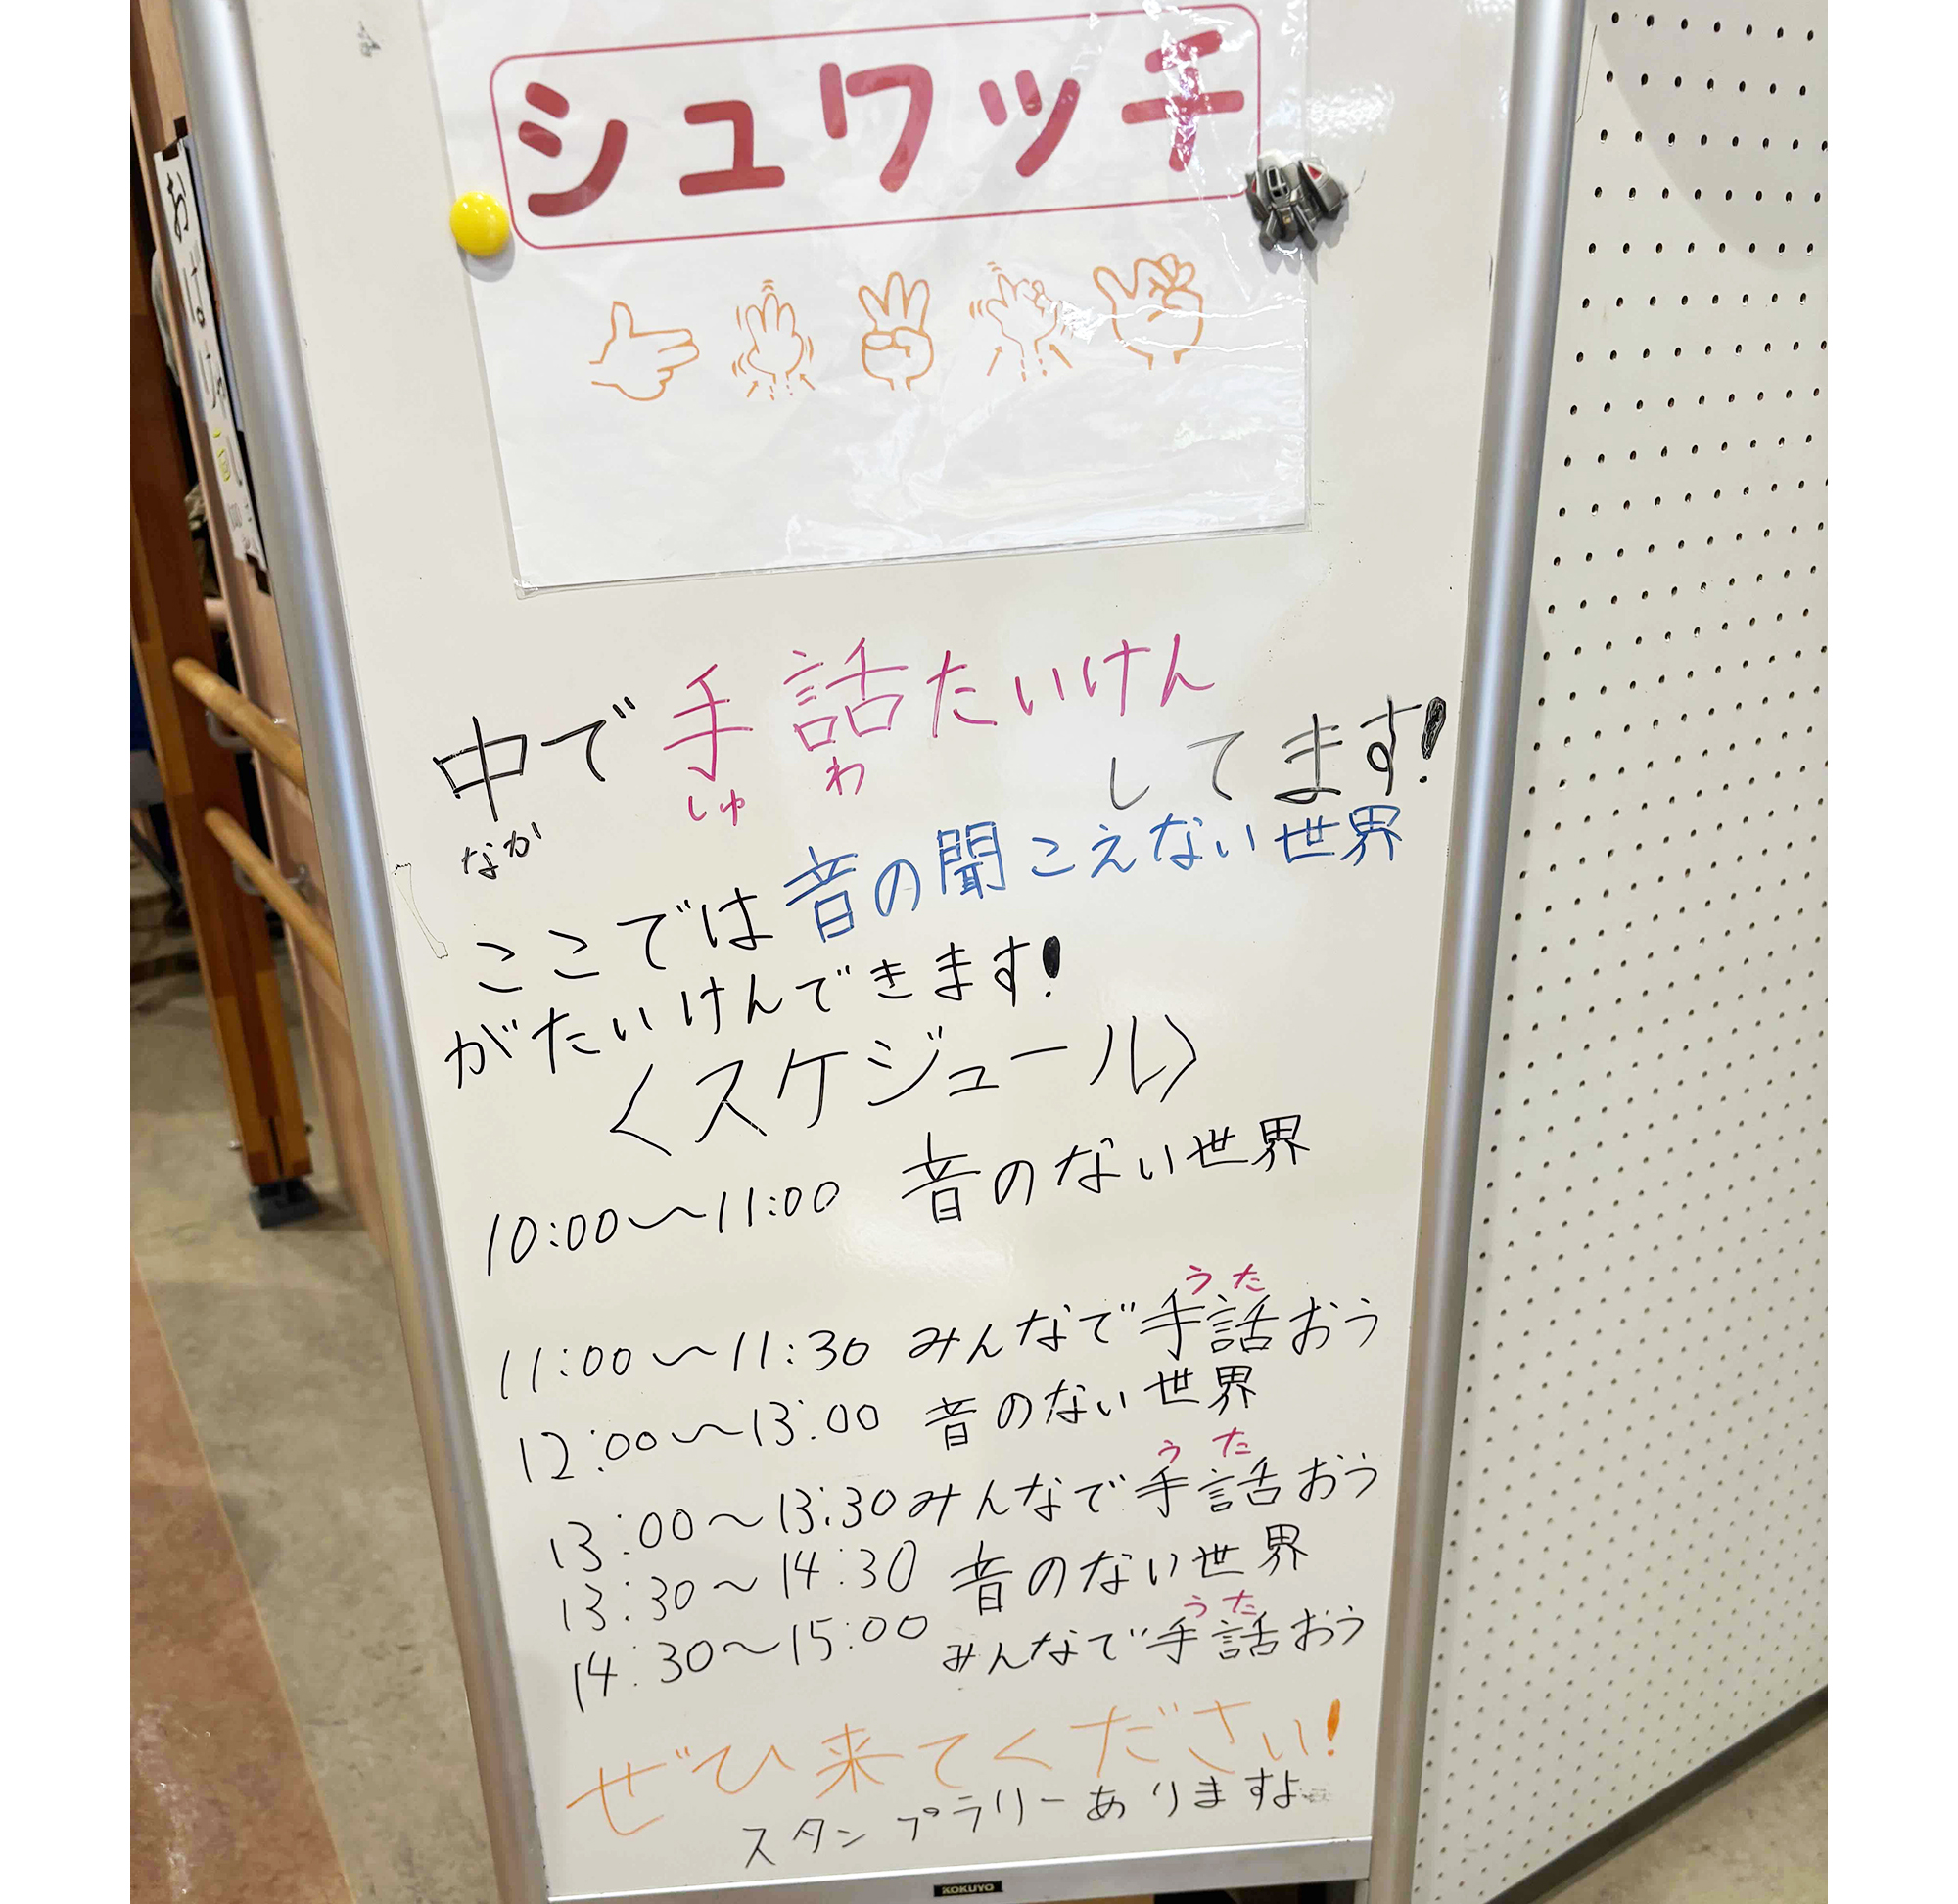 シュワッチ
中で手話たいけん
なか しゅ わ
してます!
ここでは音の聞こえない世界
がたいけんできます!
〈スケジュール〉
10:00〜11:00 音のない世界
うた
11:00〜11:30 みんなで手話おう
12:00〜13:00 音のない世界
うた
13:00〜13:30 みんなで手話おう
13:30〜14:30 音のない世界
うた
14:30〜15:00 みんなで手話おう
ぜひ来てください!
スタンプラリーありますよ
KOKUYO